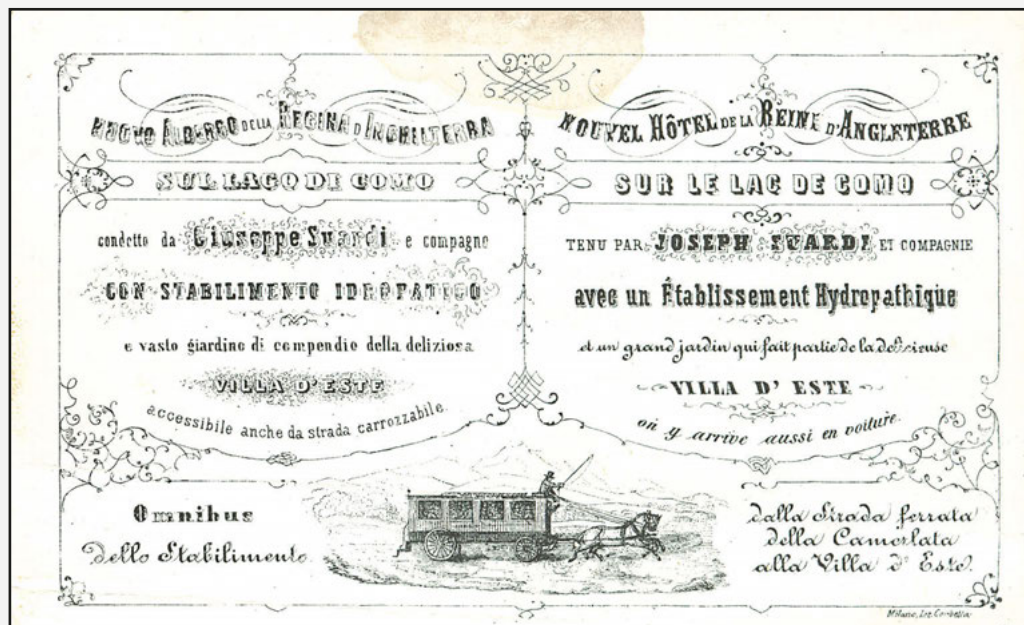 NUOVO ALBERGO DELLA REGINA D'INGHILTERRA
SUL LAGO DI COMO
condotto da Giuseppe Suardi e compagno
CON STABILIMENTO IDROPATICO
e vasto giardino di compendio della deliziosa
VILLA D'ESTE
accessibile anche da strada carrozzabile.
NOUVEL HÔTEL DE LA REINE D'ANGLETERRE
SUR LE LAC DE COMO
TENU PAR JOSEPH SUARDI ET COMPAGNIE
avec un Établissement Hydropathique
et un grand jardin qui fait partie de la délicieuse
VILLA D' ESTE
on y arrive aussi en voiture.
Omnibus
dello Stabilimento
dalla Strada ferrata
della Camerlata
alla Villa d' Este.
Milano, Lit. Corbetta